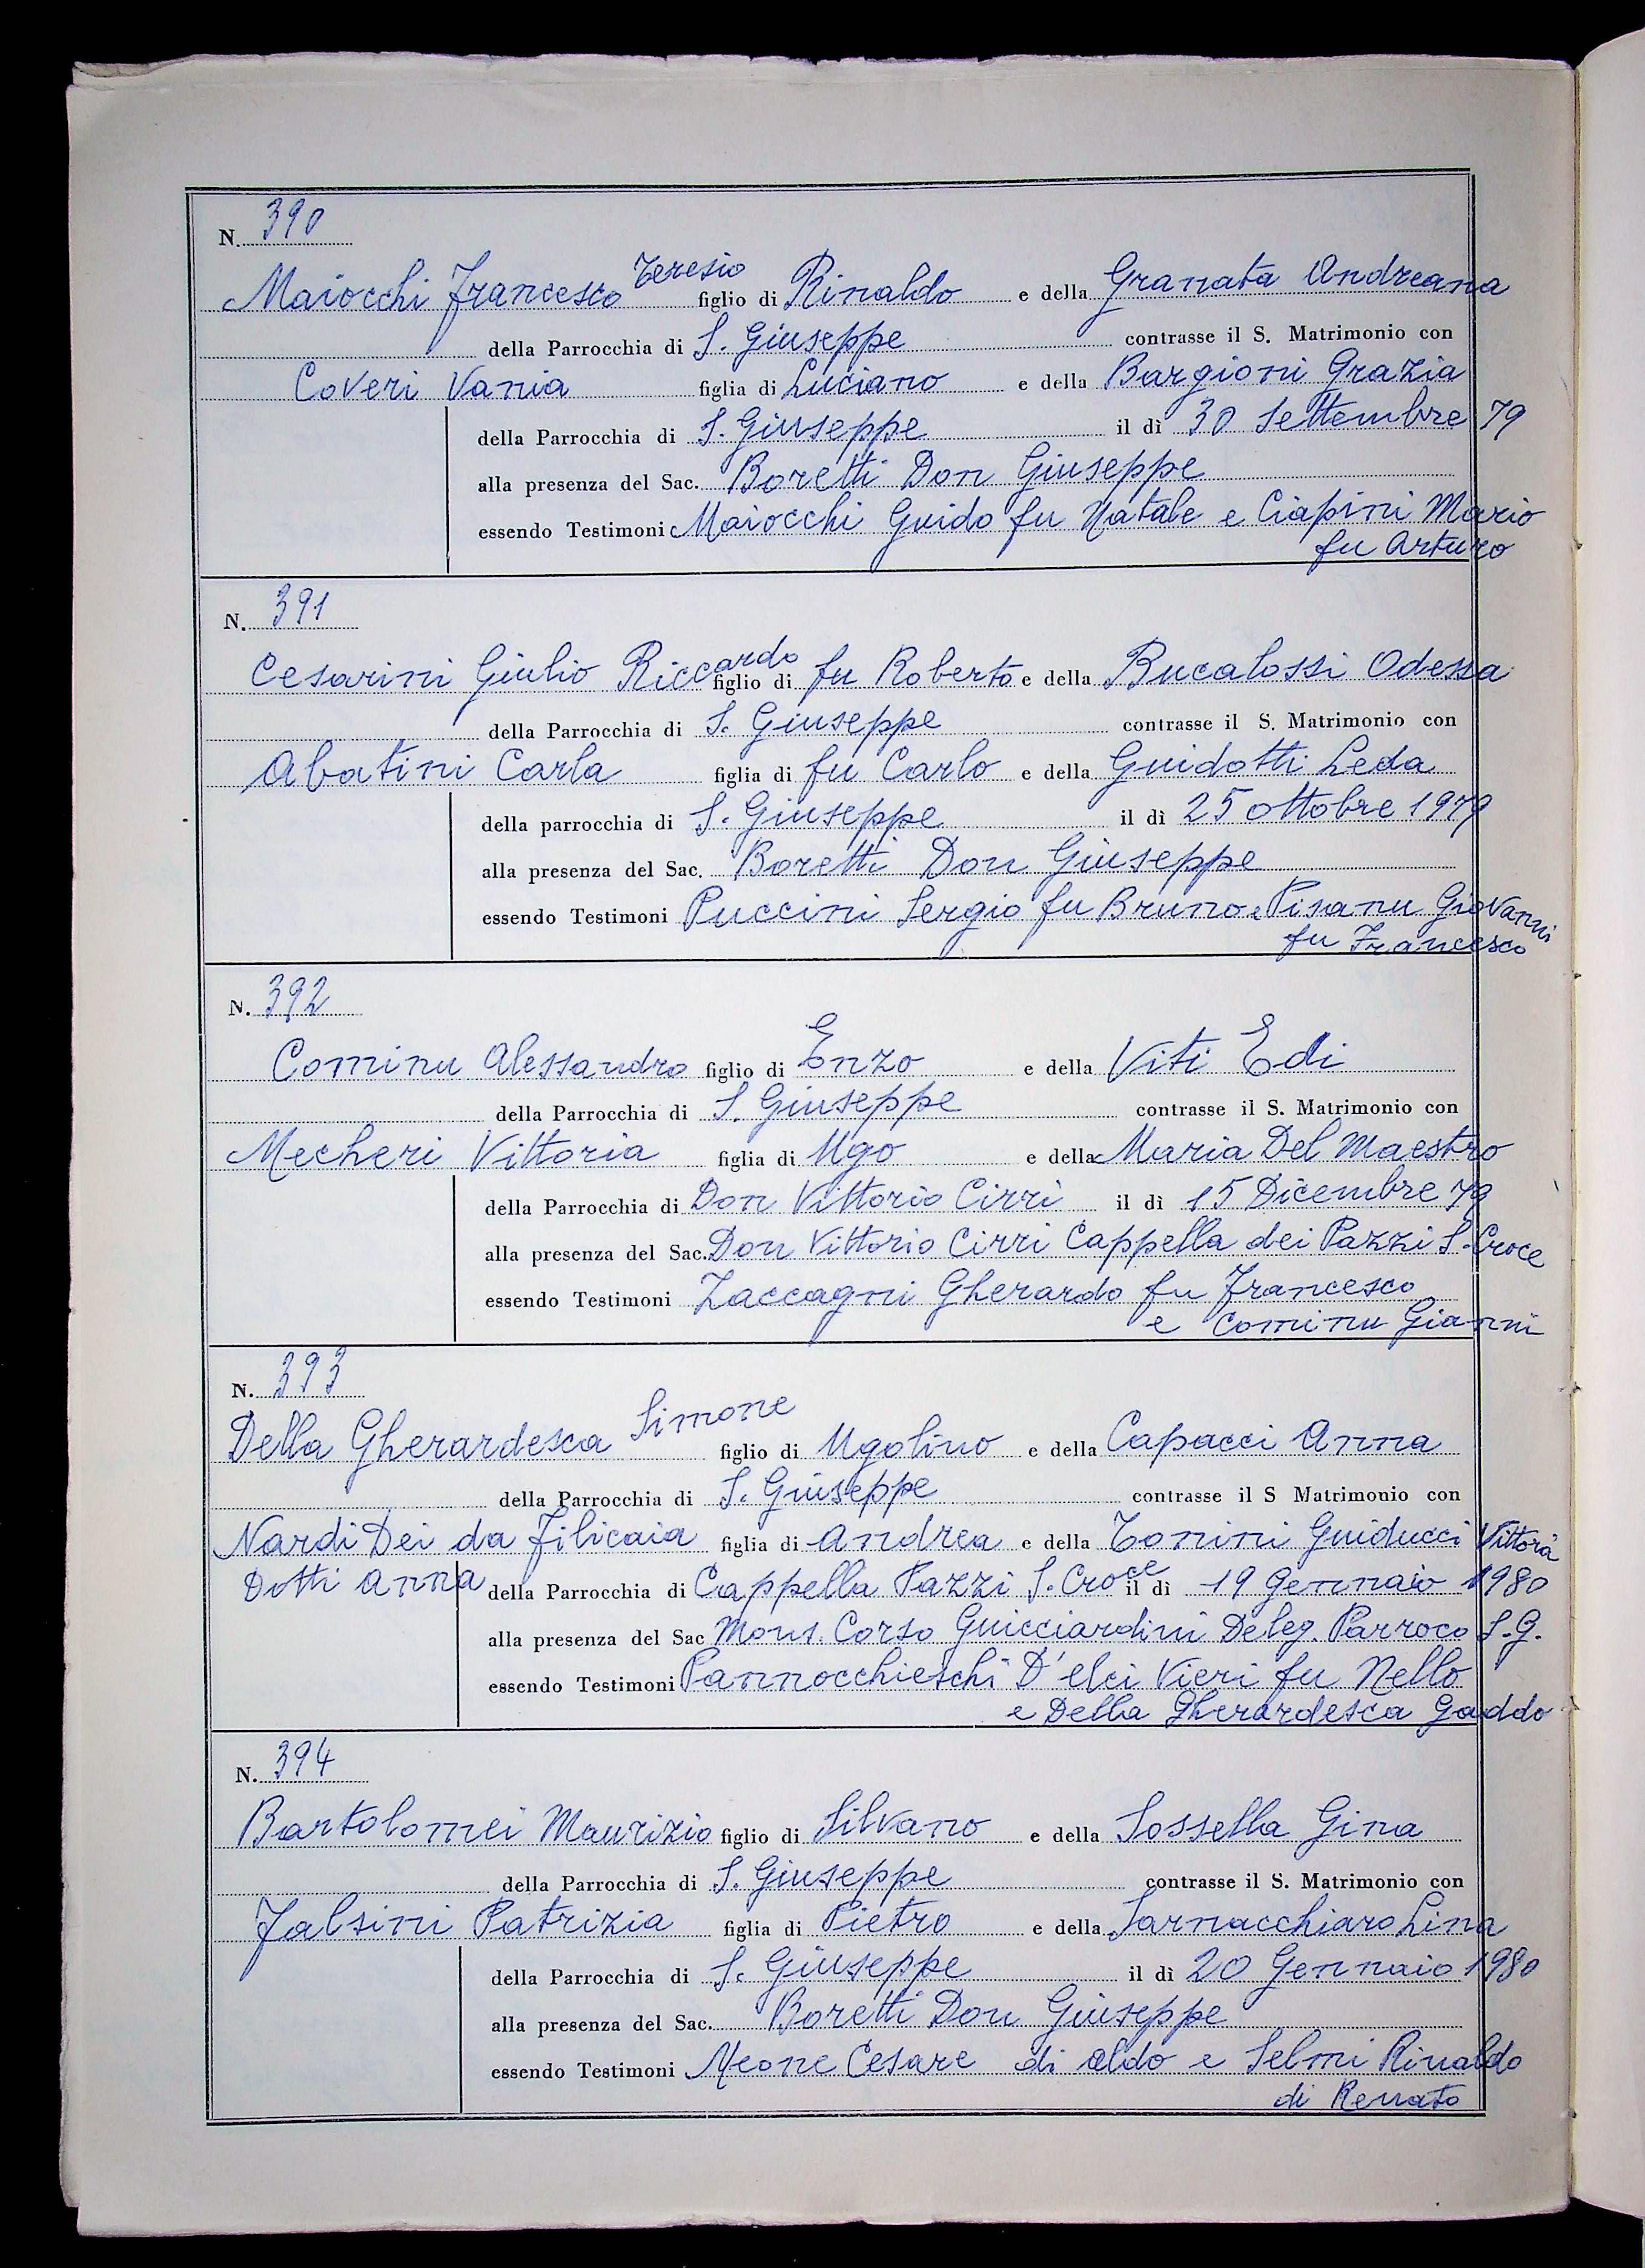 N. 390
Maiocchi Francesco Teresio figlio di Rinaldo e della Granata Andreana
della Parrocchia di S. Giuseppe contrasse il S. Matrimonio con
Coveri Vania figlia di Luciano e della Bargioni Grazia
della Parrocchia di S. Giuseppe il dì 30 Settembre 79
alla presenza del Sac. Boretti Don Giuseppe
essendo Testimoni Maiocchi Guido fu Natale e Ciapini Mario
fu Arturo
N. 391
Cesarini Giulio Riccardo figlio di fu Roberto e della Bucalossi Odessa
della Parrocchia di S. Giuseppe contrasse il S. Matrimonio con
Abatini Carla figlia di fu Carlo e della Guidotti Leda
della parrocchia di S. Giuseppe il dì 25 ottobre 1979
alla presenza del Sac. Boretti Don Giuseppe
essendo Testimoni Puccini Sergio fu Bruno e Pisanu Giovanni
fu Francesco
N. 392
Cominu Alessandro figlio di Enzo e della Viti Edi
della Parrocchia di S. Giuseppe contrasse il S. Matrimonio con
Mecheri Vittoria figlia di Ugo e della Maria Del Maestro
della Parrocchia di Don Vittorio Cirri il dì 15 Dicembre 79
alla presenza del Sac. Don Vittorio Cirri Cappella dei Pazzi S. Croce
essendo Testimoni Zaccagni Gherardo fu Francesco
e Cominu Gianni
N. 393
Della Gherardesca Simone figlio di Ugolino e della Capacci Anna
della Parrocchia di S. Giuseppe contrasse il S Matrimonio con
Nardi Dei da Filicaia figlia di Andrea e della Tonini Guiducci Vittoria
Dotti Anna della Parrocchia di Cappella Pazzi S. Croce il dì 19 Gennaio 1980
alla presenza del Sac Mons. Corso Guicciardini Deleg. Parroco S.G.
essendo Testimoni Pannocchieschi D'elci Vieri fu Nello
e Della Gherardesca Gaddo
N. 394
Bartolomei Maurizio figlio di Silvano e della Sossella Gina
della Parrocchia di S. Giuseppe contrasse il S. Matrimonio con
Falsini Patrizia figlia di Pietro e della Sarnacchiaro Lina
della Parrocchia di S. Giuseppe il dì 20 Gennaio 1980
alla presenza del Sac. Boretti Don Giuseppe
essendo Testimoni Meone Cesare di Aldo e Selmi Rinaldo
di Renato